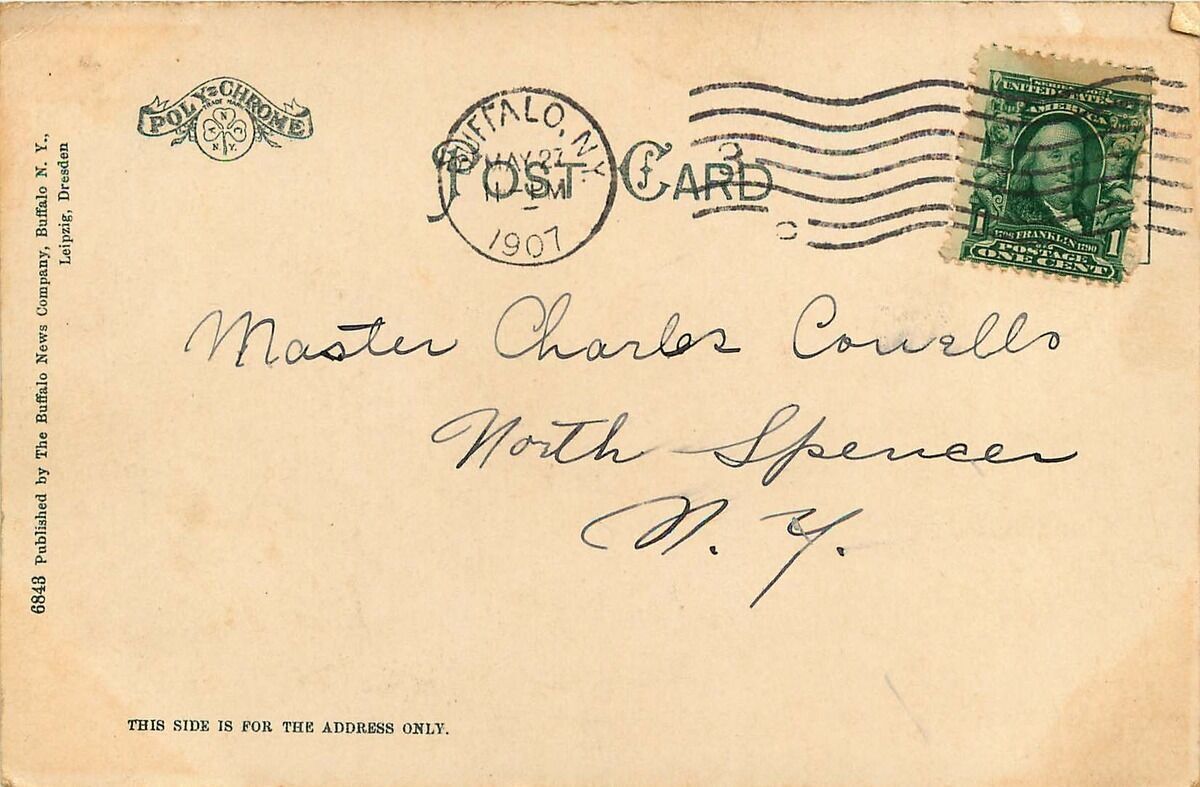 POLY-CHROME
TRADE MARK
A N C
N. Y.
BUFFALO, N.Y.
MAY 27
PM
1907
POST CARD
3
UNITED STATES OF
AMERICA
1 1
1706 FRANKLIN 1790
POSTAGE
ONE CENT
Master Charles
North Spencer
N. Y.
6843 Published by The Buffalo News Company, Buffalo N. Y.,
Leipzig, Dresden
THIS SIDE IS FOR THE ADDRESS ONLY.